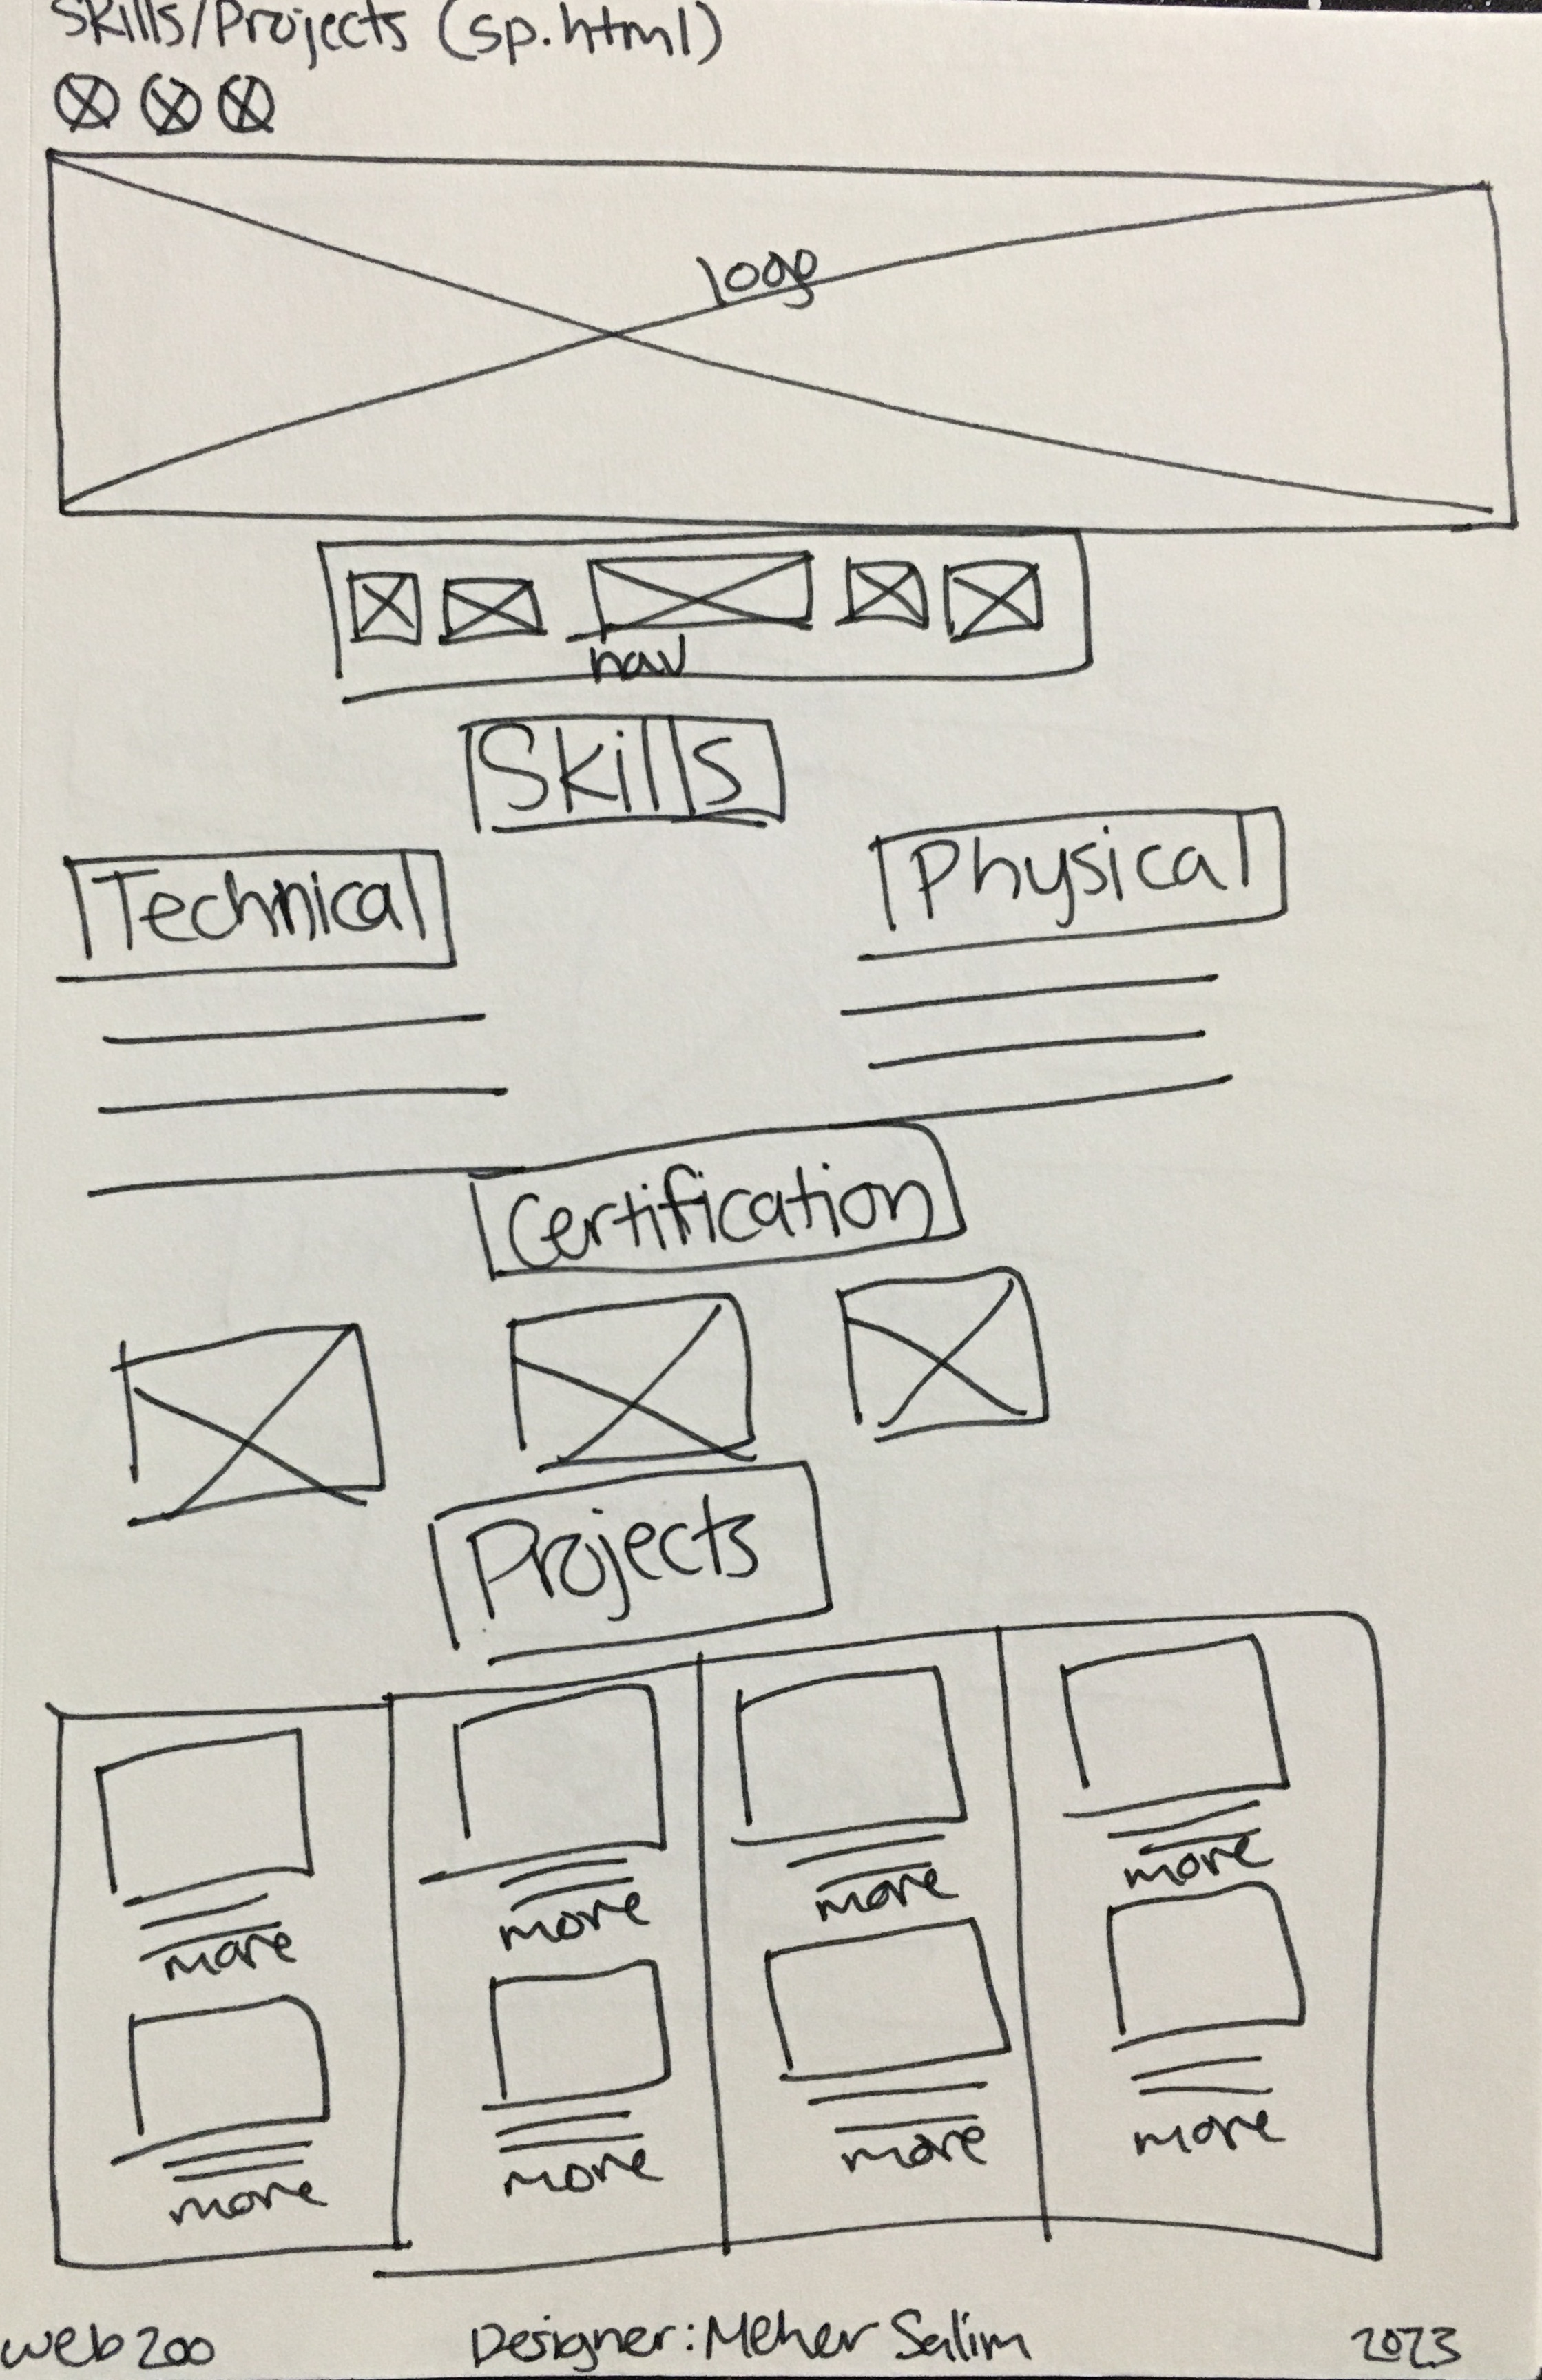 Skills/Projects (sp.html)
logo
nav
Skills
Technical
Physical
Certification
Projects
more
more
more
more
more
more
more
more
web200
Designer: Meher Salim
2023